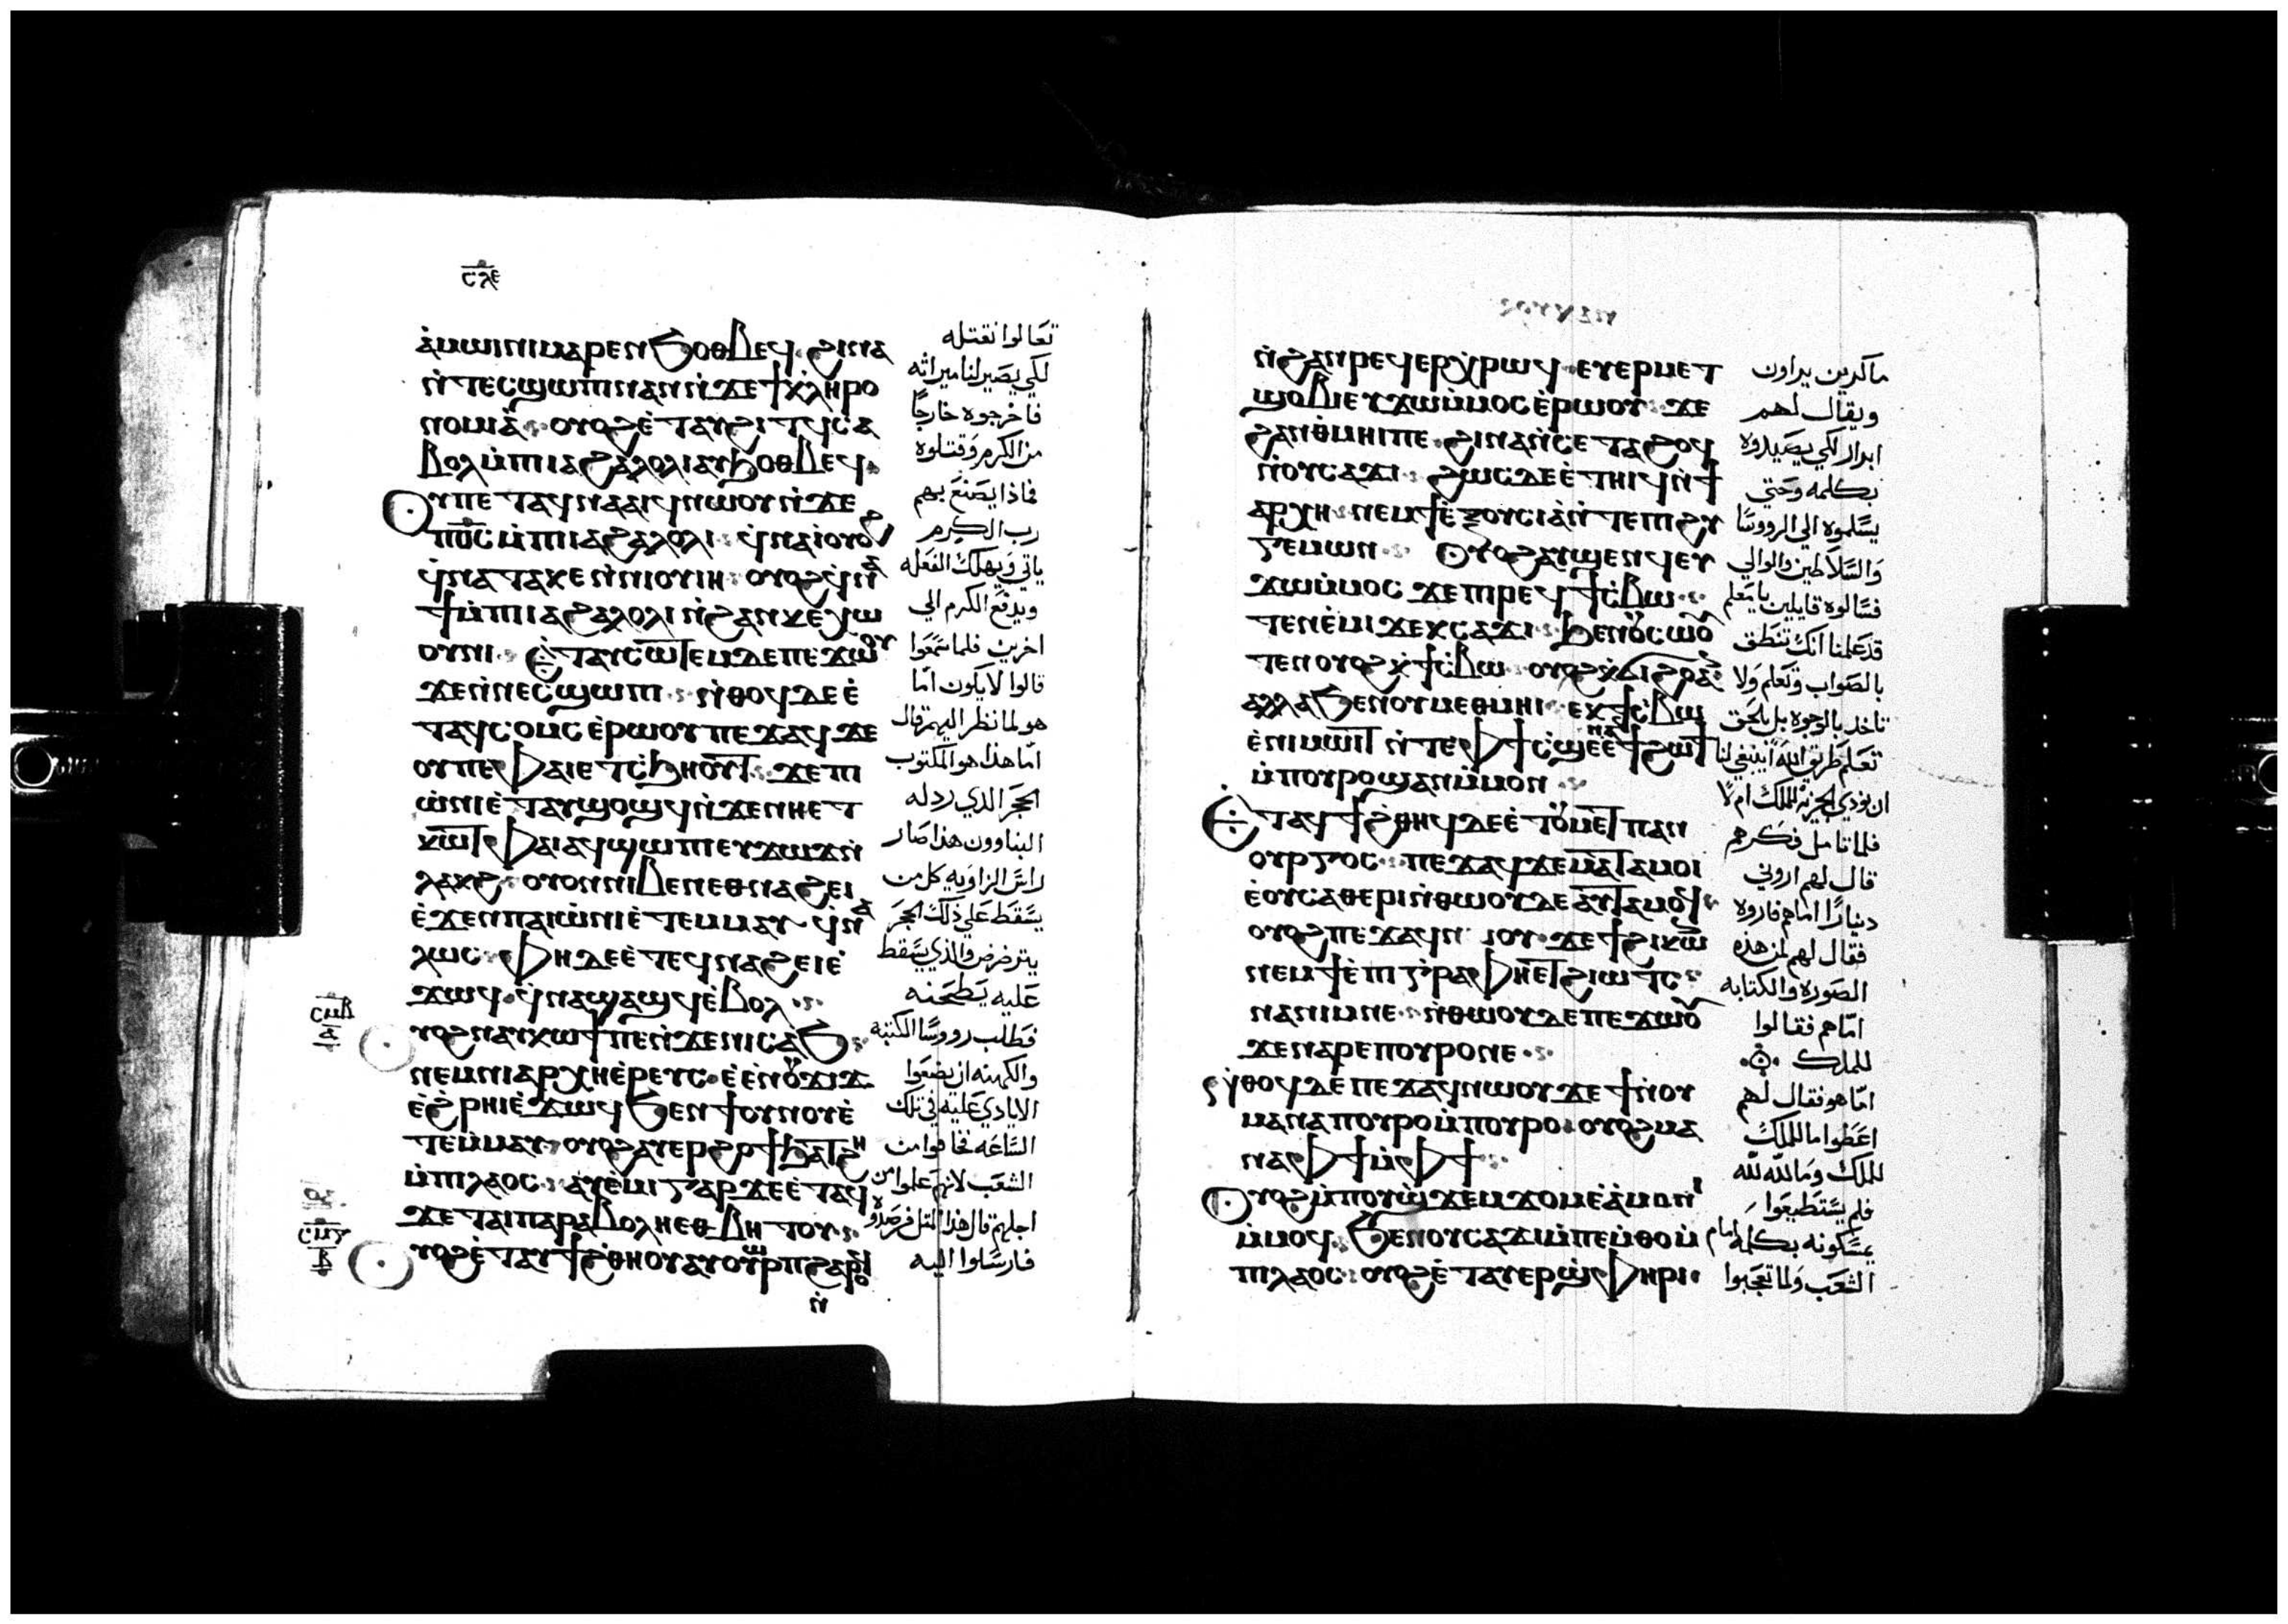 ⲥⲗⲉ
ⲁ̀ⲙⲱⲓⲛⲓ ⲙⲁⲣⲉⲛϧⲟⲑⲃⲉϥ ϩⲓⲛⲁ
ⲛ̀ⲧⲉⲥϣⲱⲡⲓ ⲛⲁⲛ ⲛ̀ϫⲉ ϯⲕⲗⲏⲣⲟ
ⲛⲟⲙⲓⲁ̀ ⲟⲩⲟϩ ⲉ̀ⲧⲁⲩϩⲓⲧϥ ⲥⲁ
ⲃⲟⲗ ⲙ̀ⲡⲓⲁϩⲁⲗⲟⲗⲓ ⲁⲩϧⲟⲑⲃⲉϥ
ⲟⲩ ⲡⲉⲧⲁϥⲛⲁⲁⲓϥ ⲛⲱⲟⲩ ⲛ̀ϫⲉ
ⲡⲟ̅ⲥ̅ ⲙ̀ⲡⲓⲁϩⲁⲗⲟⲗⲓ ϥ̀ⲛⲁⲓ̀ ⲟⲩⲟϩ
ϥ̀ⲛⲁⲧⲁⲕⲉ ⲛ̀ⲛⲓⲟⲩⲓⲏ ⲟⲩⲟϩ ϥ̀ⲛⲁ
ϯ ⲙ̀ⲡⲓⲁϩⲁⲗⲟⲗⲓ ⲛ̀ϩⲁⲛⲕⲉⲟⲩⲱ
ⲟⲩⲛⲓ ⲉ̀ⲧⲁⲩⲥⲱⲧⲉⲙ ⲇⲉ ⲡⲉϫⲱⲟⲩ
ϫⲉ ⲛ̀ⲛⲉⲥϣⲱⲡⲓ ⲛ̀ⲑⲟϥ ⲇⲉ ⲉ̀
ⲧⲁϥⲥⲟⲙⲥ ⲉ̀ⲣⲱⲟⲩ ⲡⲉϫⲁϥ ϫⲉ
ⲟⲩ ⲡⲉ ⲫⲁⲓ ⲉⲧⲥ̀ϧⲏⲟⲩⲧ ϫⲉ ⲡⲓ
ⲱ̀ⲛⲓ ⲉ̀ⲧⲁⲩϣⲟϣϥ ⲛ̀ϫⲉ ⲛⲏⲉⲧ
ⲕⲱⲧ ⲫⲁⲓ ⲁϥϣⲱⲡⲓ ⲉⲩϫⲱϫ ⲛ̀
ⲗⲁⲕϩ ⲟⲩⲟⲛ ⲛⲓⲃⲉⲛ ⲉⲑⲛⲁϩⲉⲓ
ⲉ̀ϫⲉⲛ ⲡⲁⲓⲱ̀ⲛⲓ ⲉ̀ⲧⲉⲙⲙⲁⲩ ϥ̀ⲛⲁ
ⲗⲱⲥ ⲫⲏ ⲇⲉ ⲉ̀ⲧⲉϥⲛⲁϩⲉⲓ ⲉ̀
ϫⲱϥ ϥ̀ⲛⲁϣⲁϣϥ ⲉ̀ⲃⲟⲗ
ⲥⲙⲃ
ⲁ
ⲟⲩⲟϩ ⲛⲁⲩⲕⲱϯ ⲡⲉ ⲛ̀ϫⲉ ⲛⲓⲥⲁϧ
ⲛⲉⲙ ⲛⲓⲁⲣⲭⲏⲉ̀ⲣⲉⲩⲥ ⲉ̀ⲉⲛ ⲟⲩϫⲓϫ
ⲉ̀ϩ̀ⲣⲏⲓ ⲉ̀ϫⲱϥ ϧⲉⲛ ϯⲟⲩⲛⲟⲩ ⲉ̀
ⲧⲉⲙ̀ⲙⲁⲩ ⲟⲩⲟϩ ⲁⲩⲉⲣϩⲟϯ ϧⲁⲧϩⲏ
ⲙ̀ⲡⲓⲗⲁⲟⲥ ⲁⲩⲉ̀ⲙⲓ ⲅⲁⲣ ϫⲉ ⲉ̀ⲧⲁϥ
ϫⲉ ⲧⲁⲓⲡⲁⲣⲁⲃⲟⲗⲏ ⲉⲑⲃⲏⲧⲟⲩ
ⲥⲙⲅ
ⲃ
ⲟⲩⲟϩ ⲉ̀ⲧⲁⲩϯϩ̀ⲑⲏⲟⲩ ⲁⲩⲟⲩⲱⲣⲡ ϩⲁⲣⲟϥ
ⲛ̀
تعالوا نقتله
لكي يصير لنا ميراثه
فاخرجوه خارجًا
من الكرم وقتلوه
فماذا يصنع بهم
رب الكرم
ياتي ويهلك الفعله
ويدفع الكرم الي
اخرين فلما سمعوا
قالوا لا يكون امّا
هو لما نظر اليهم قال
امّا هذا هو المكتوب
الحجر الذي رذله
البناوون هذا صار
راس الزاويه كل من
يسقط علي ذلك الحجر
يترضرض والذي يسقط
عليه يطحنه
فطلب رووسا الكتبه
والكهنه ان يضعوا
الايادي عليه في تلك
الساعه فخافوا من
الشعب لانهم علموا ان من
اجلهم قال هذا المثل فرصدوه
فارسلوا اليه
ⲛ̀ϩⲁⲛⲣⲉϥⲉⲣⲭ̀ⲣⲱϥ ⲉⲩⲉⲣⲙⲉⲧ
ϣⲟⲃⲓ ⲉⲩϫⲱⲙ̀ⲙⲟⲥ ⲉ̀ⲣⲱⲟⲩ ϫⲉ
ϩⲁⲛⲑ̀ⲙⲏⲓ ⲡⲉ ϩⲓⲛⲁ ⲛ̀ⲥⲉⲧⲁϩⲟϥ
ⲛ̀ⲟⲩⲥⲁϫⲓ ϩⲱⲥⲇⲉ ⲉ̀ⲧⲏⲓϥ ⲛ̀ϯ
ⲁⲣⲭⲏ ⲛⲉⲙ ϯⲉ̀ⲝⲟⲩⲥⲓⲁ ⲛ̀ⲧⲉ ⲡⲓϩⲩ
ⲅⲉⲙⲱⲛ ⲟⲩⲟϩ ⲁⲩϣⲉⲛϥ ⲉⲩ
ϫⲱⲙ̀ⲙⲟⲥ ϫⲉ ⲡⲓⲣⲉϥϯⲥ̀ⲃⲱ
ⲧⲉⲛⲉ̀ⲙⲓ ϫⲉ ⲕⲥⲁϫⲓ ϧⲉⲛ ⲟⲩⲥⲱⲟⲩ
ⲧⲉⲛ ⲟⲩⲟϩ ⲕ̀ϯⲥ̀ⲃⲱ ⲟⲩⲟϩ ⲕ̀ϭⲓϩⲟ ⲁⲛ
ⲁⲗⲗⲁ ϧⲉⲛ ⲟⲩⲙⲉⲑⲙⲏⲓ ⲉⲕϯⲥ̀ⲃⲱ
ⲉ̀ⲡⲓⲙⲱⲓⲧ ⲛ̀ⲧⲉ ⲫϯ ⲥ̀ϣⲉ ⲛⲁⲛ ⲉ̀ϯϩⲱϯ
ⲙ̀ⲡⲟⲩⲣⲟ ϣⲁⲛ ⲙ̀ⲙⲟⲛ
ⲉ̀ⲧⲁϥϯϩ̀ⲑⲏϥ ⲇⲉ ⲉ̀ⲧⲟⲩⲙⲉⲧⲡⲁⲛ
ⲟⲩⲣⲅⲟⲥ ⲡⲉϫⲁϥ ϫⲉ ⲙⲁⲧⲁⲙⲟⲓ
ⲉ̀ⲟⲩⲥⲁⲑⲉⲣⲓ ⲛ̀ⲑⲱⲟⲩ ⲇⲉ ⲁⲩⲧⲁⲙⲟϥ
ⲟⲩⲟϩ ⲡⲉϫⲁϥ ⲛⲱⲟⲩ ϫⲉ ϯϩⲓⲕⲱⲛ
ⲛⲉⲙ ϯⲉ̀ⲡⲓⲅⲣⲁⲫⲏ ⲉⲧϩⲓⲱⲧⲥ
ⲛⲁⲛⲓⲙ ⲛⲉ ⲛ̀ⲑⲱⲟⲩ ⲇⲉ ⲡⲉϫⲱⲟⲩ
ϫⲉ ⲛⲁⲣⲉⲡⲟⲩⲣⲟ ⲛⲉ
ⲛ̀ⲑⲟϥ ⲇⲉ ⲡⲉϫⲁϥ ⲛⲱⲟⲩ ϫⲉ ϯⲛⲟⲩ
ⲙⲁ ⲛⲁ ⲡⲟⲩⲣⲟ ⲙ̀ⲡⲟⲩⲣⲟ ⲟⲩⲟϩ ⲙⲁ
ⲛⲁ ⲫϯ ⲙ̀ⲫϯ
ⲟⲩⲟϩ ⲙ̀ⲡⲟⲩϣ̀ϫⲉⲙϫⲟⲙ ⲉ̀ⲁ̀ⲙⲟⲛⲓ
ⲙ̀ⲙⲟϥ ϧⲉⲛ ⲟⲩⲥⲁϫⲓ ⲙ̀ⲡⲉⲙ̀ⲑⲟ ⲙ̀
ⲡⲓⲗⲁⲟⲥ ⲟⲩⲟϩ ⲉ̀ⲧⲁⲩⲉⲣϣ̀ⲫⲏⲣⲓ
ماكرين يراون
ويقال لهم
ابرار لكي يصيدوه
بكلمه وحتي
يسلموه الي الرووسا
والسلاطين والوالي
فسالوه قايلين يا معلم
قد علمنا انك تنطق
بالصواب وتعلم ولا
تاخذ بالوجوه بل بالحق
تعلم طريق الله اينبغي لنا
ان نودي الجزيه للملك ام لا
فلما تامل فكرهم
قال لهم اروني
دينارًا امّا هم فاروه
فقال لهم لمن هذه
الصوره والكتابه
امّا هم فقالوا
للملك
امّا هو فقال لهم
اعطوا ما للملك
للملك وما لله لله
فلم يستطيعوا
يمسكونه بكلمه امام
الشعب ولما تعجبوا